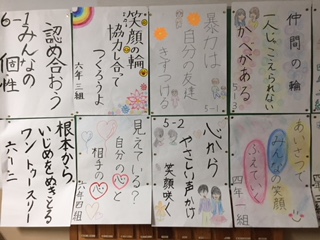 仲間の輪
一人じゃこえられない
かべがある
5-3
暴力は
自分の友達
きずつける
5-1
笑顔の輪
協力し合って
つくろうよ
六年三組
認め合おう
みんなの
個性
6-1
あいさつで
みんなの笑顔
ふえていく
四年一組
5-2
心から
やさしい声かけ
笑顔咲く
見えている?
自分の心と
相手の心
六年四組
根本から
いじめをぬきとる
ワントゥースリー
六ー二